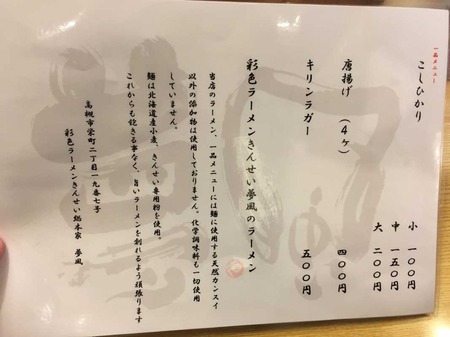 一品メニュー
こしひかり
小 一〇〇円
中 一五〇円
大 二〇〇円
唐揚げ (4ヶ) 四〇〇円
キリンラガー 五〇〇円
彩色ラーメンきんせい夢風のラーメン
当店のラーメン、一品メニューには麺に使用する天然カンスイ
以外の添加物は使用しておりません。化学調味料も一切使用
していません。
麺は北海道産小麦、きんせい専用粉を使用。
これからも飽きる事なく、旨いラーメンを創れるよう頑張ります
高槻市栄町二丁目一九番七号
彩色ラーメンきんせい総本家 夢風